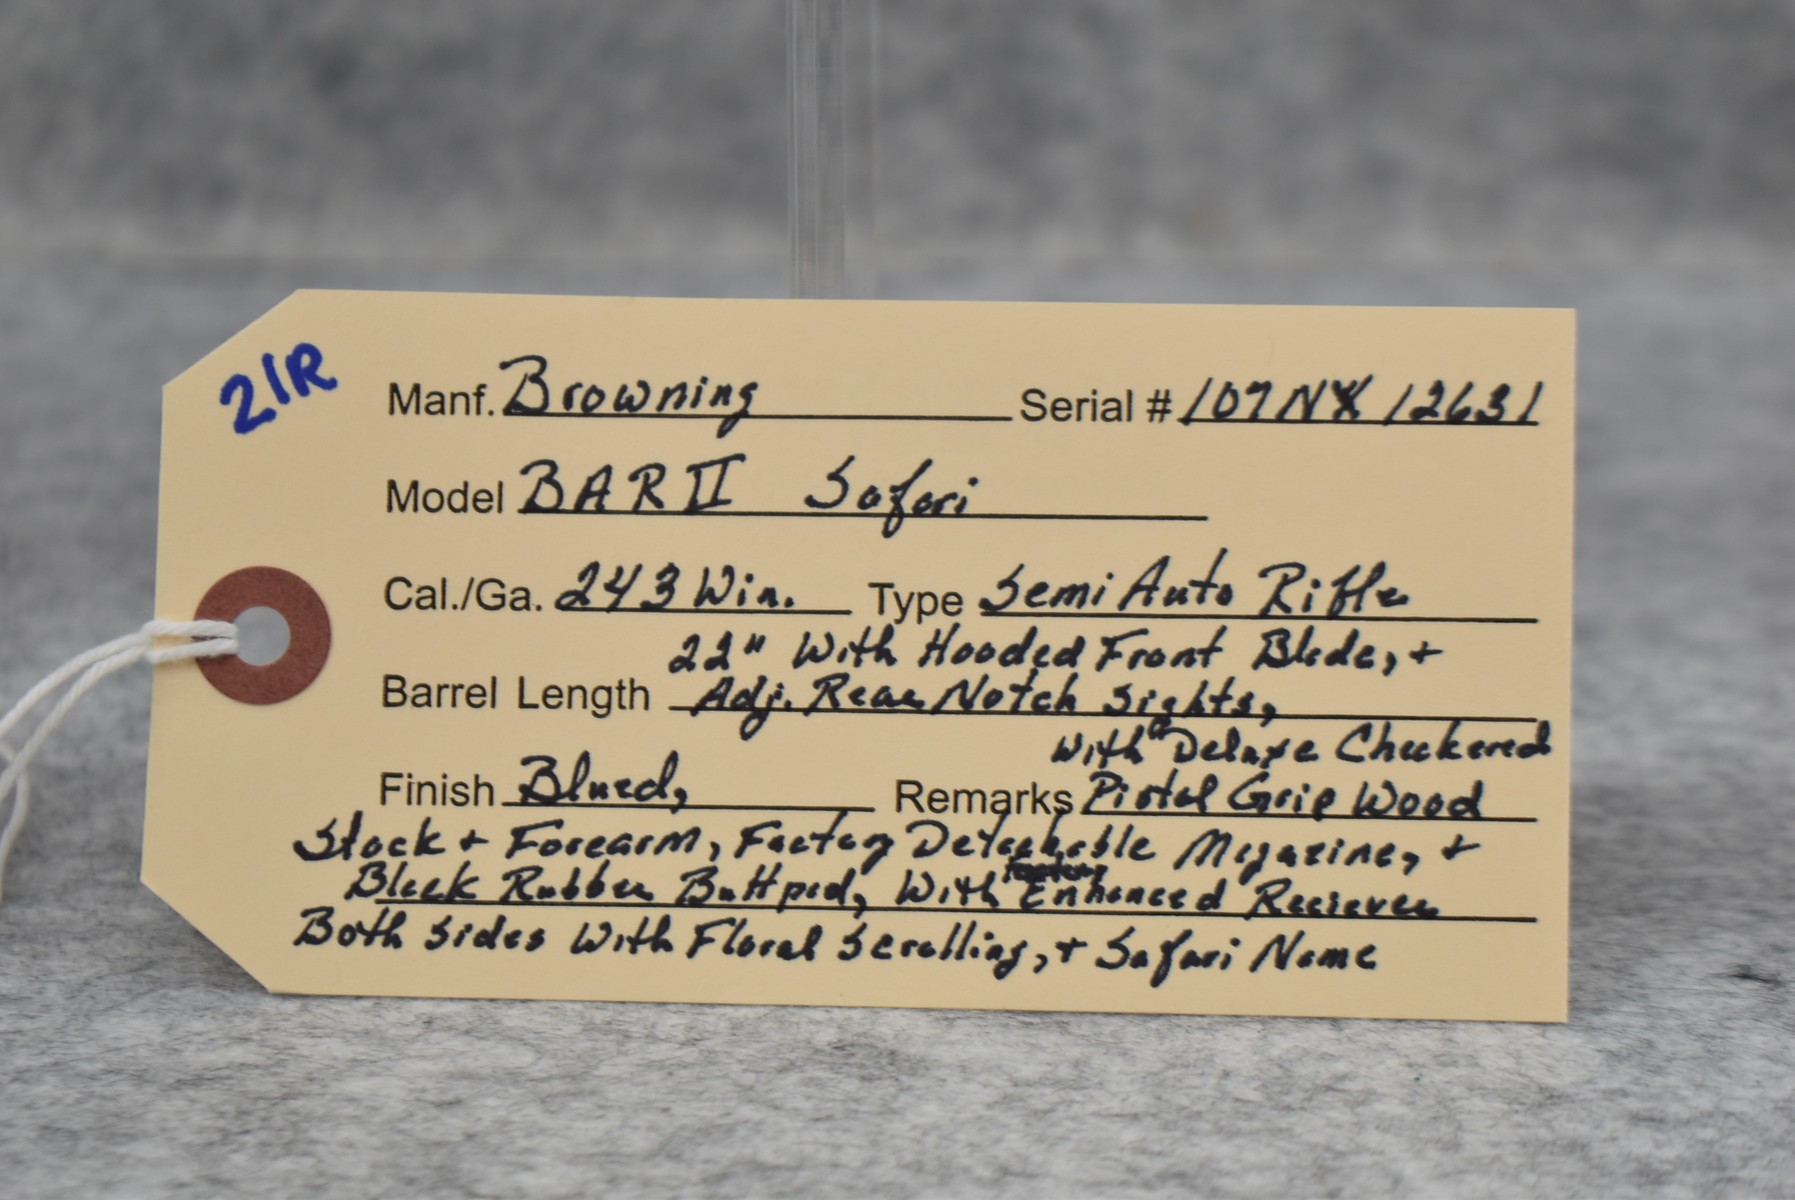 21R
Manf. Browning Serial # 107NX12631
Model BAR II Safari
Cal./Ga. 243 Win. Type Semi Auto Rifle
22" With Hooded Front Blade, +
Barrel Length Adj. Rear Notch Sights,
With a Deluxe Checkered
Finish Blued, Remarks Pistol Grip Wood
Stock + Forearm, Factory Detachable Magazine, +
Black Rubber Buttpad, With Factory Enhanced Reciever
Both Sides With Floral Scrolling, + Safari Name